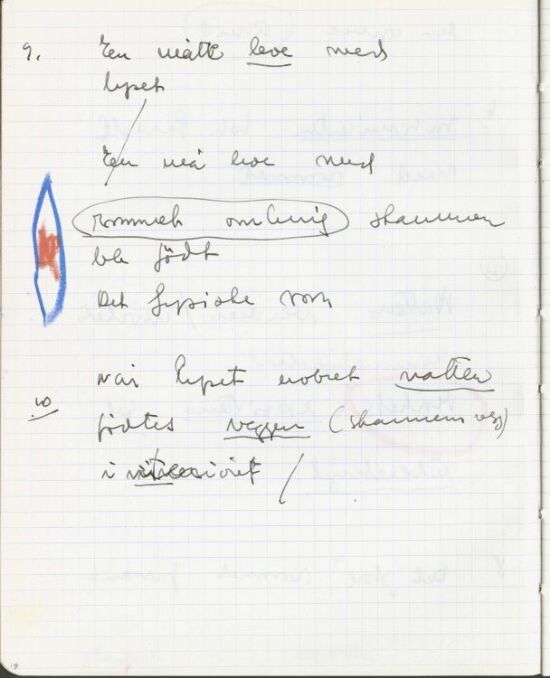 9. En måtte leve med
lyset
En må leve med
rommet omkring skammen
ble född
Det fysiske rom
10 når lyset møtet natten
födtes veggen (skammens vegg)
i
19